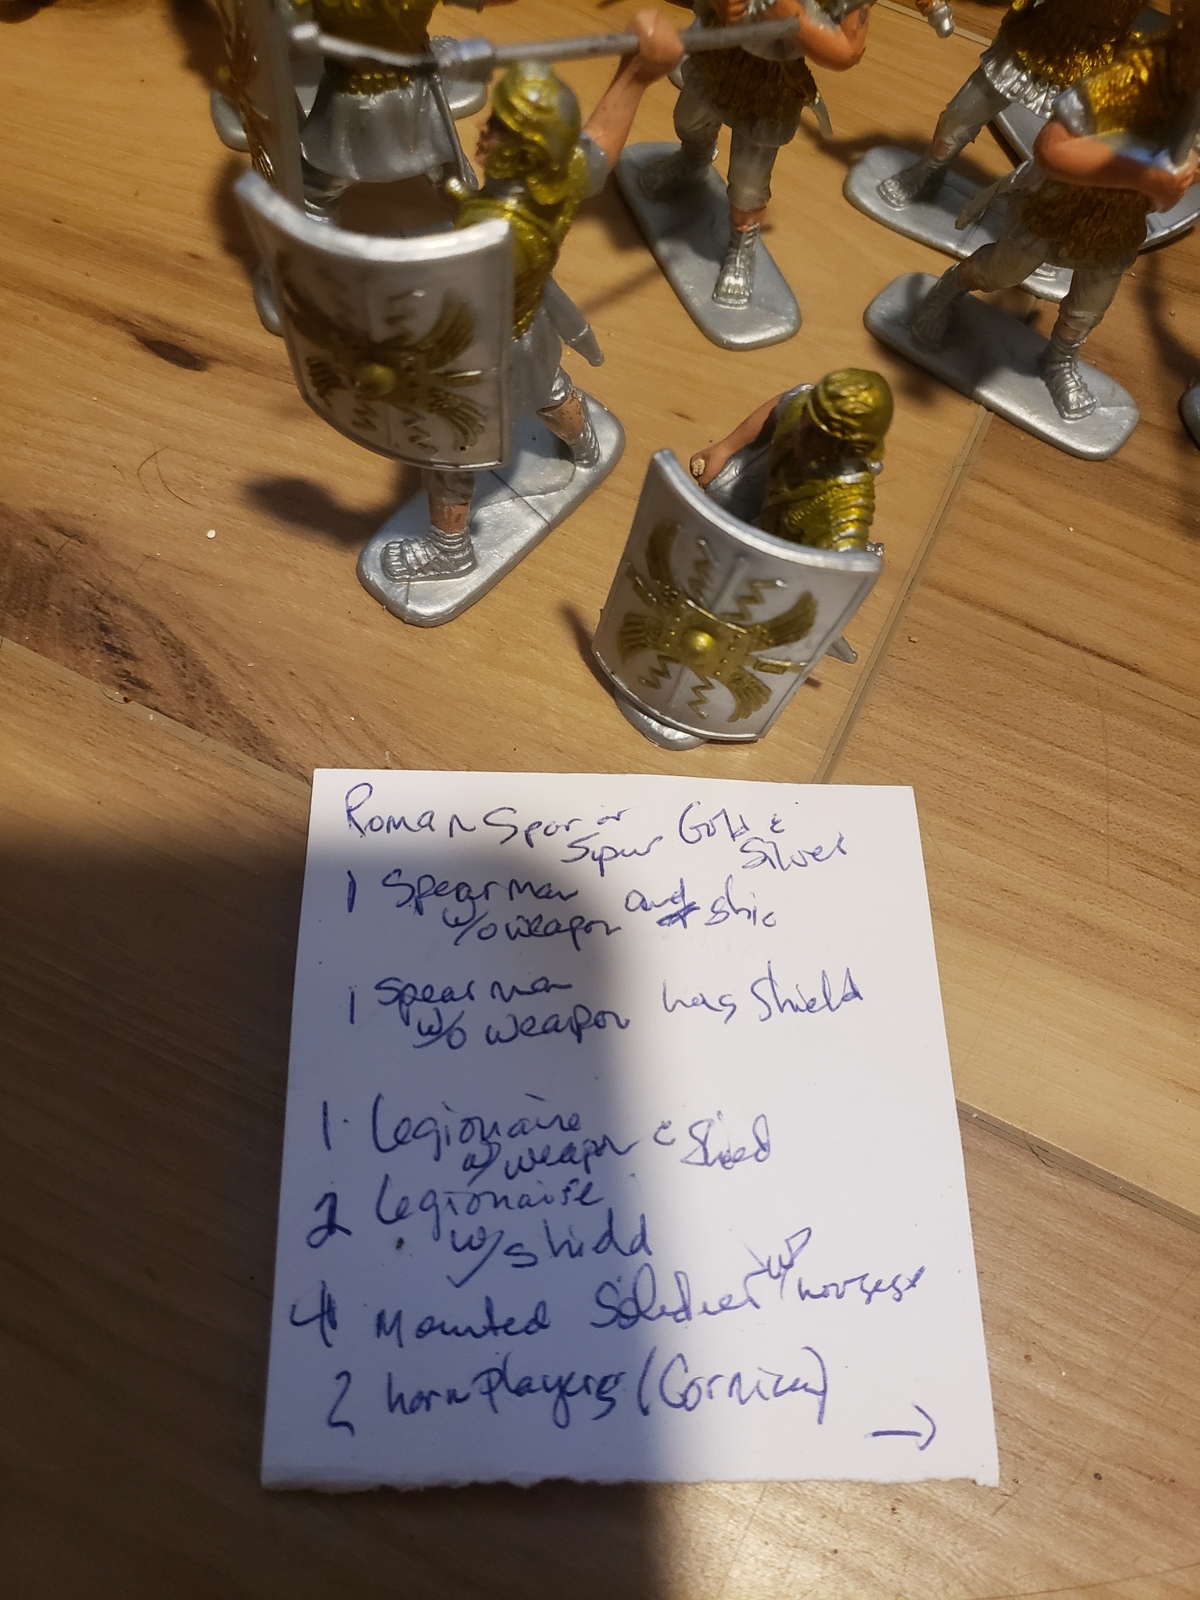 Roman Spor or Gold &
Spur Silver
1 Spearman and shie
w/o weapon
1 Spearman has Shield
w/o weapon
1. Legionaire & Shied
w/ weapon
2 Legionaire
w/shield
4 Mounted w/ horses
2 horn Players (Cornicen)
→